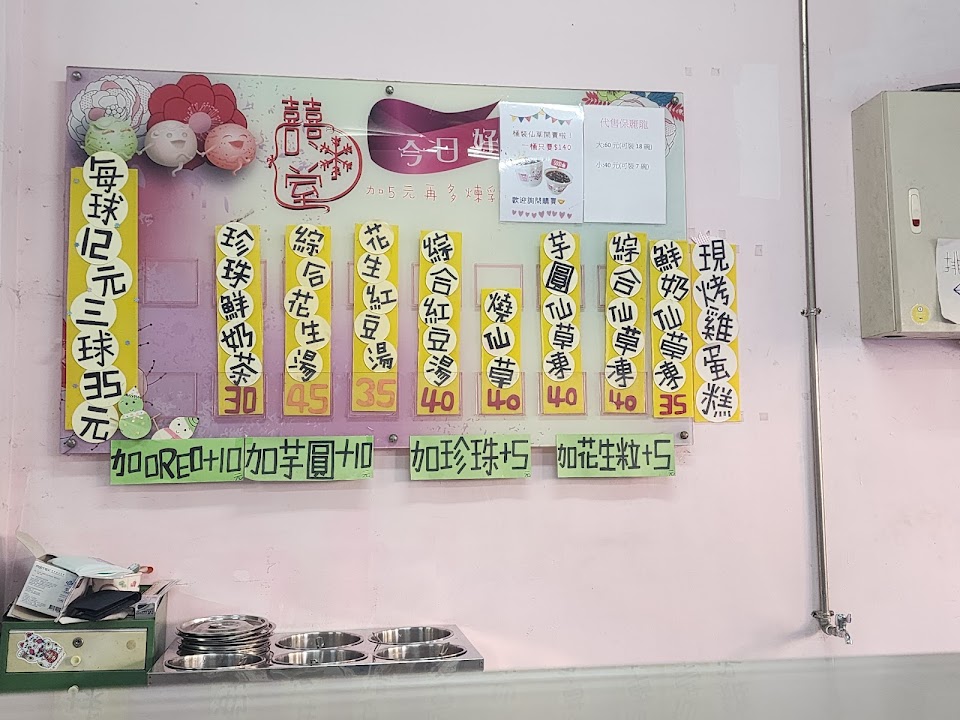 囍室
今日好
加5元再多煉乳
桶裝仙草開賣啦！
一桶只要$140
歡迎詢問購買
代售保麗龍
大:60元(可裝18碗)
小:40元(可裝7碗)
每球12元三球35元
珍珠鮮奶茶30
綜合花生湯45
花生紅豆湯35
綜合紅豆湯40
燒仙草40
芋圓仙草凍40
綜合仙草凍40
鮮奶仙草凍35
現烤雞蛋糕
加OREO+10元
加芋圓+10元
加珍珠+5元
加花生粒+5元